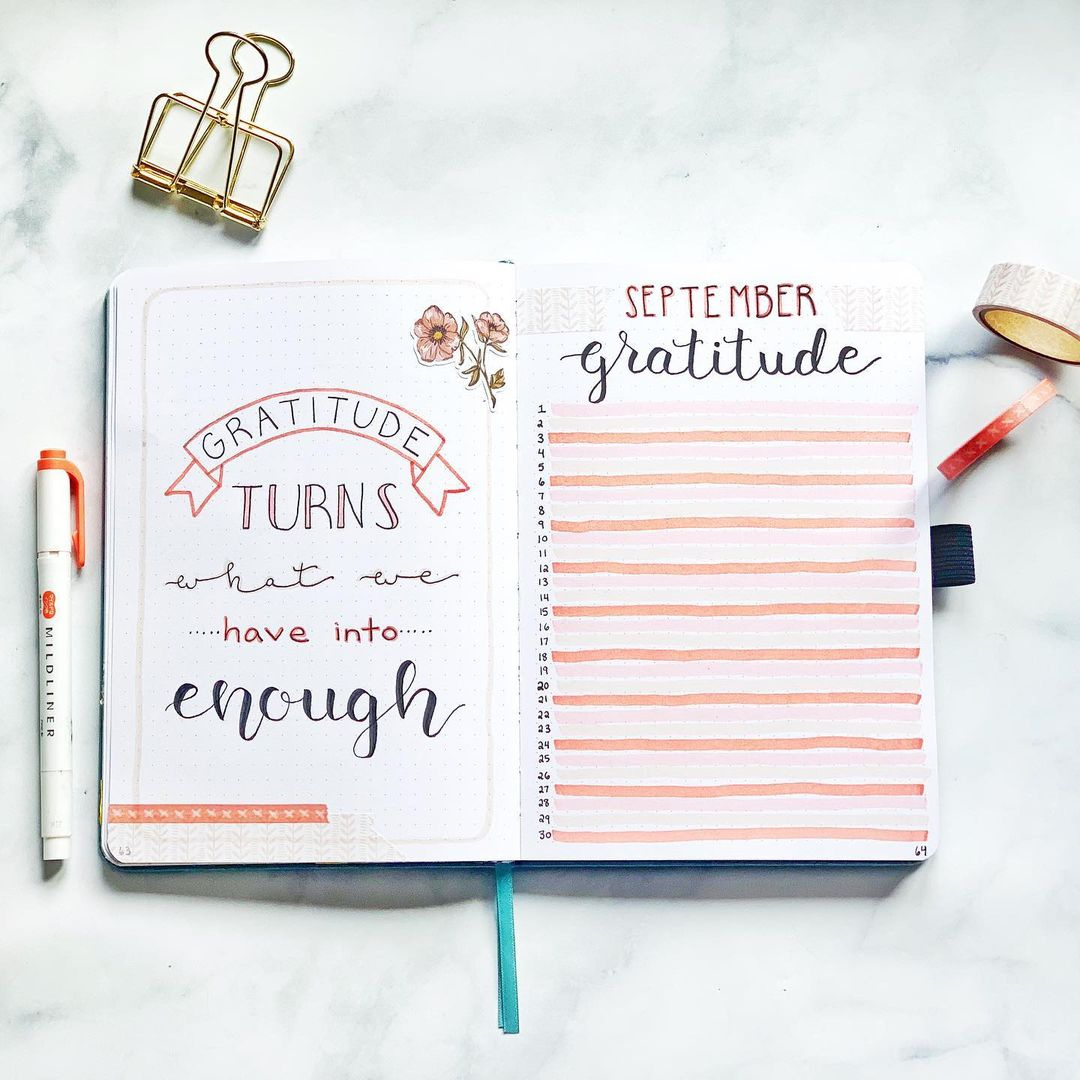 GRATITUDE
TURNS
what we
have into
enough
63
SEPTEMBER
gratitude
1
2
3
4
5
6
7
8
9
10
11
12
13
14
15
16
17
18
19
20
21
22
23
24
25
26
27
28
29
30
64
MILDLINER